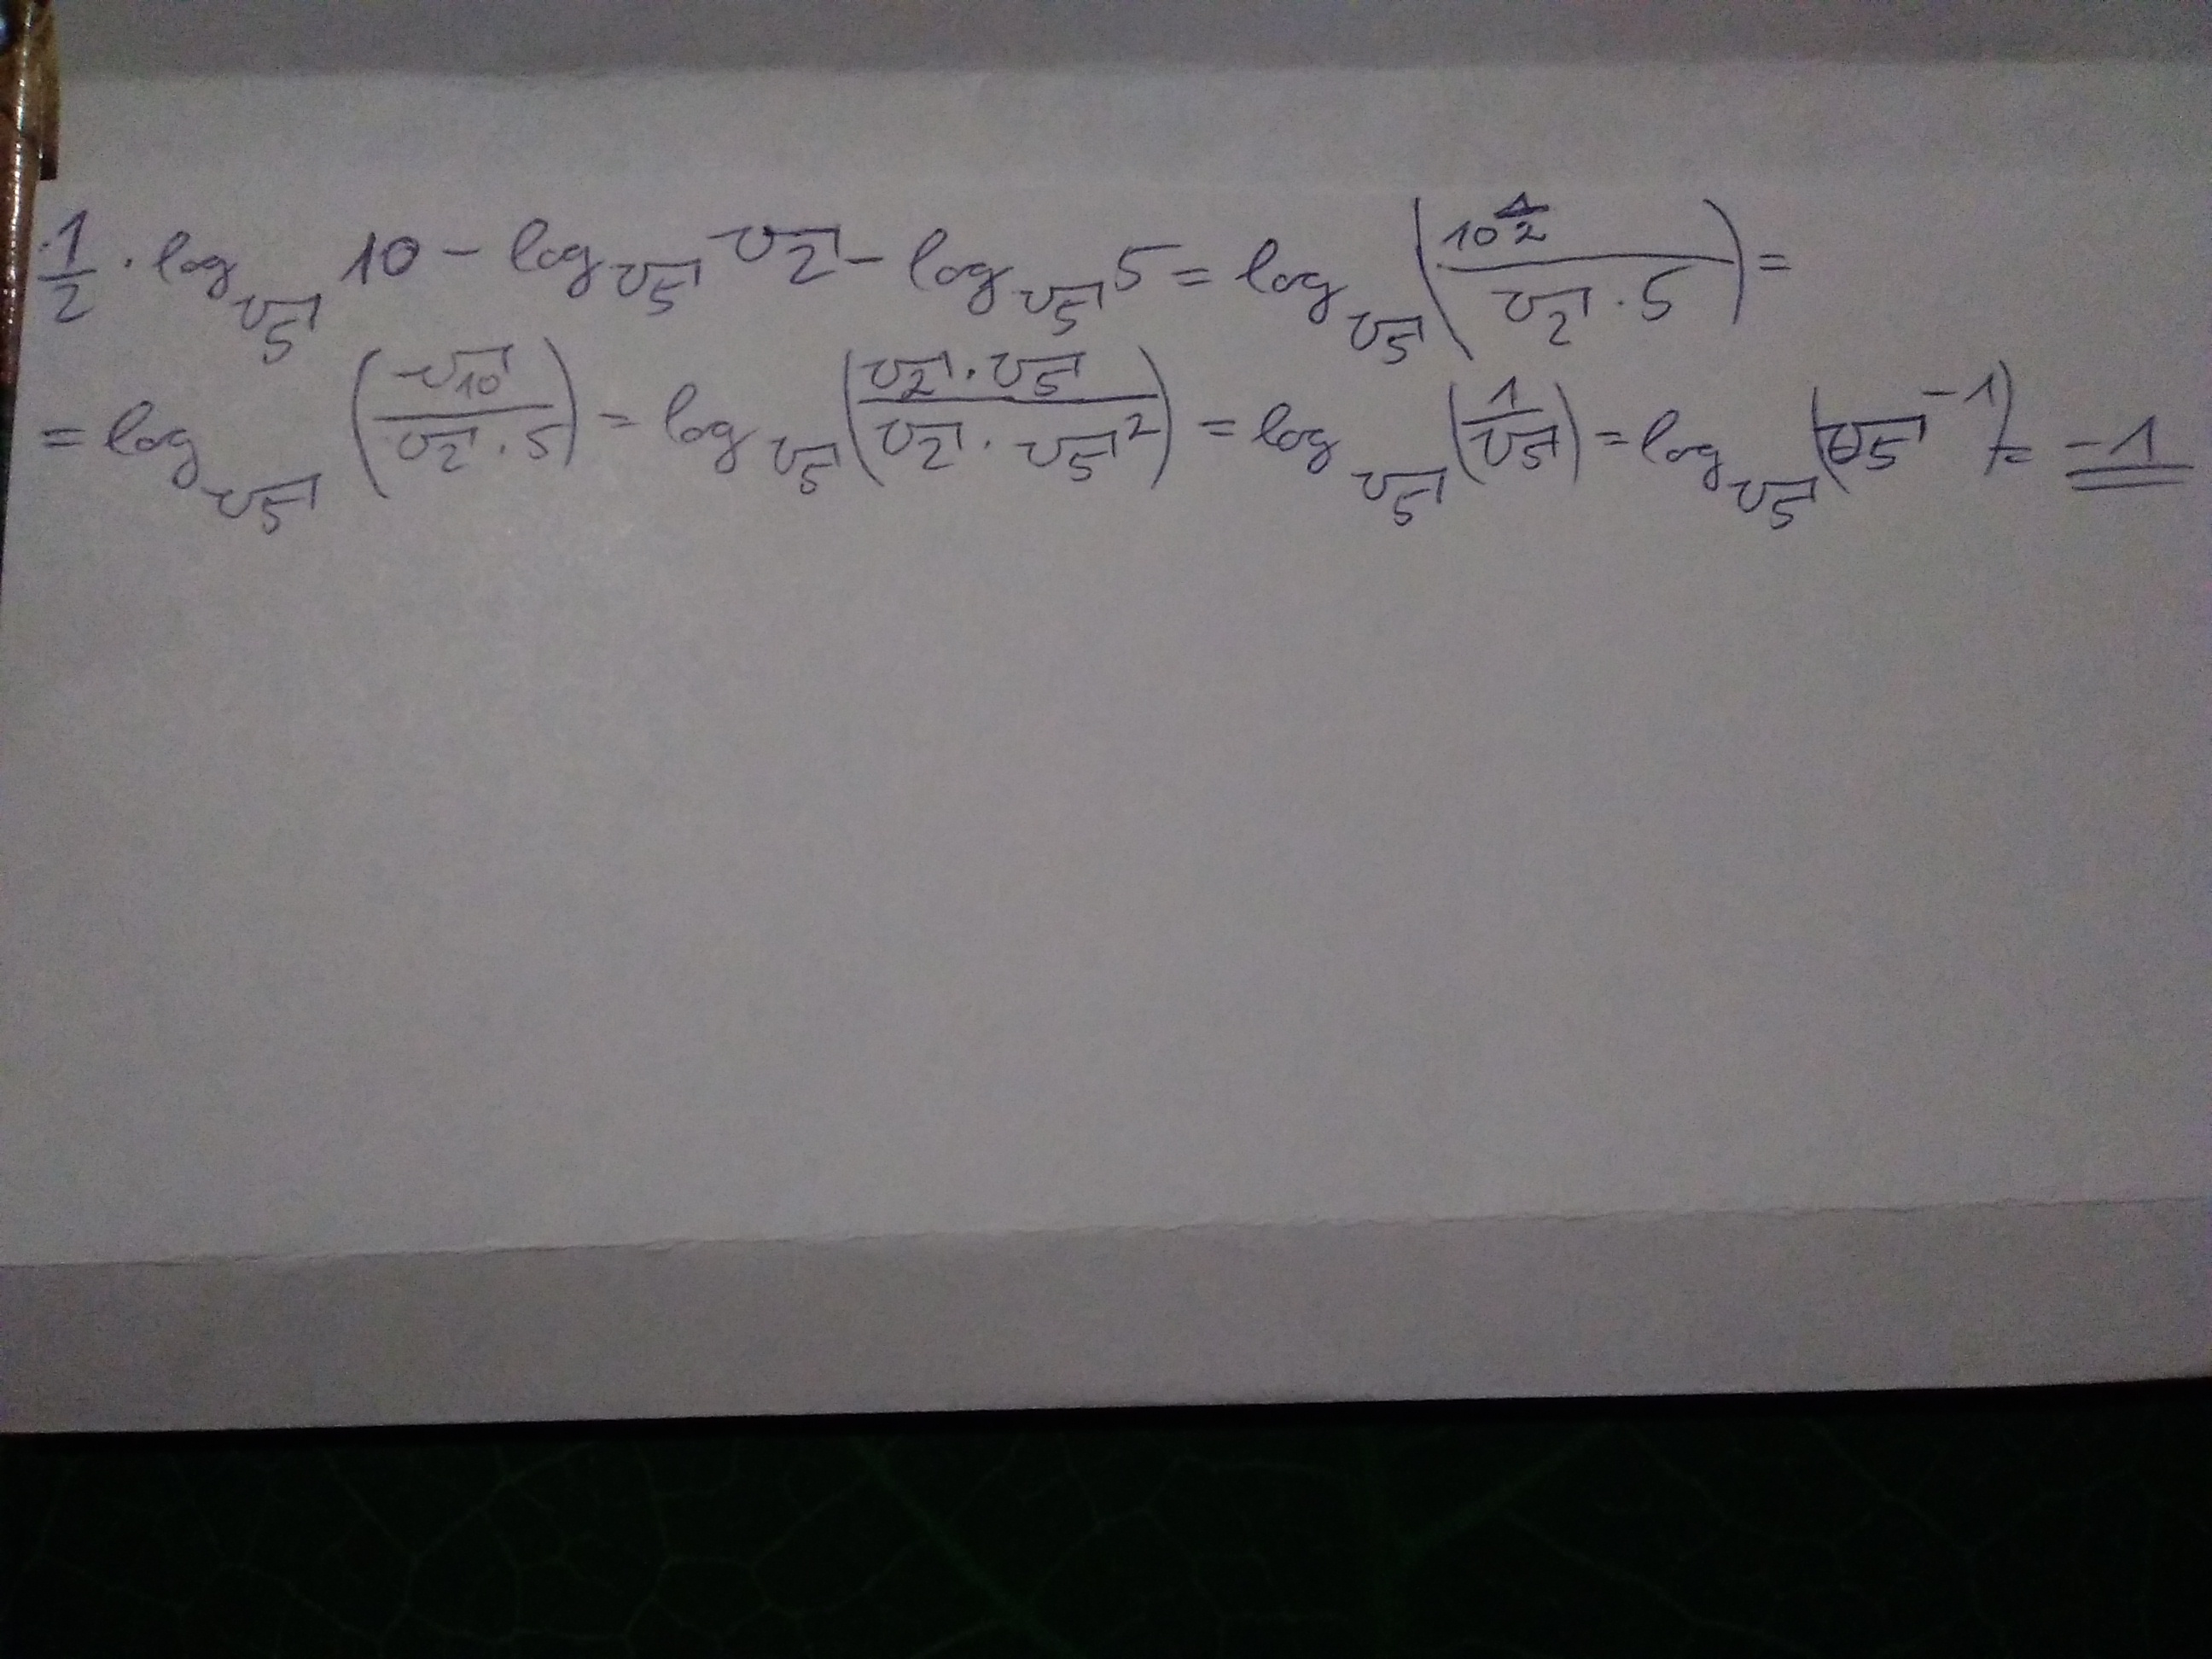 1/2 · log_√5 10 - log_√5 √2 - log_√5 5 = log_√5 (10^(1/2) / (√2 · 5)) =
= log_√5 (√10 / (√2 · 5)) = log_√5 ((√2 · √5) / (√2 · √5²)) = log_√5 (1/√5) = log_√5 (√5⁻¹) = -1